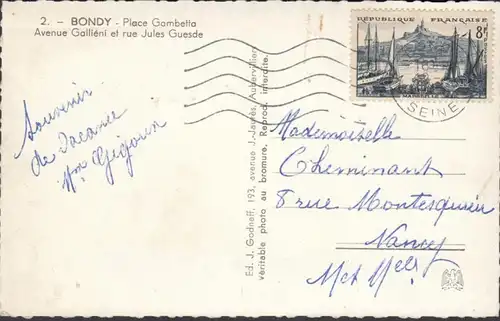 2. - BONDY - Place Gambetta
Avenue Galliéni et rue Jules Guesde
RÉPUBLIQUE FRANÇAISE
8F
SEINE
Souvenir
de Vacance
Mm Gigoux
Ed. J. Godneff, 193, avenue J.-Jaurès, Aubervilliers
véritable photo au bromure. Reprod. interdite.
Mademoiselle
Cheminant
8 rue Montesquieu
Nancy
Met Melle